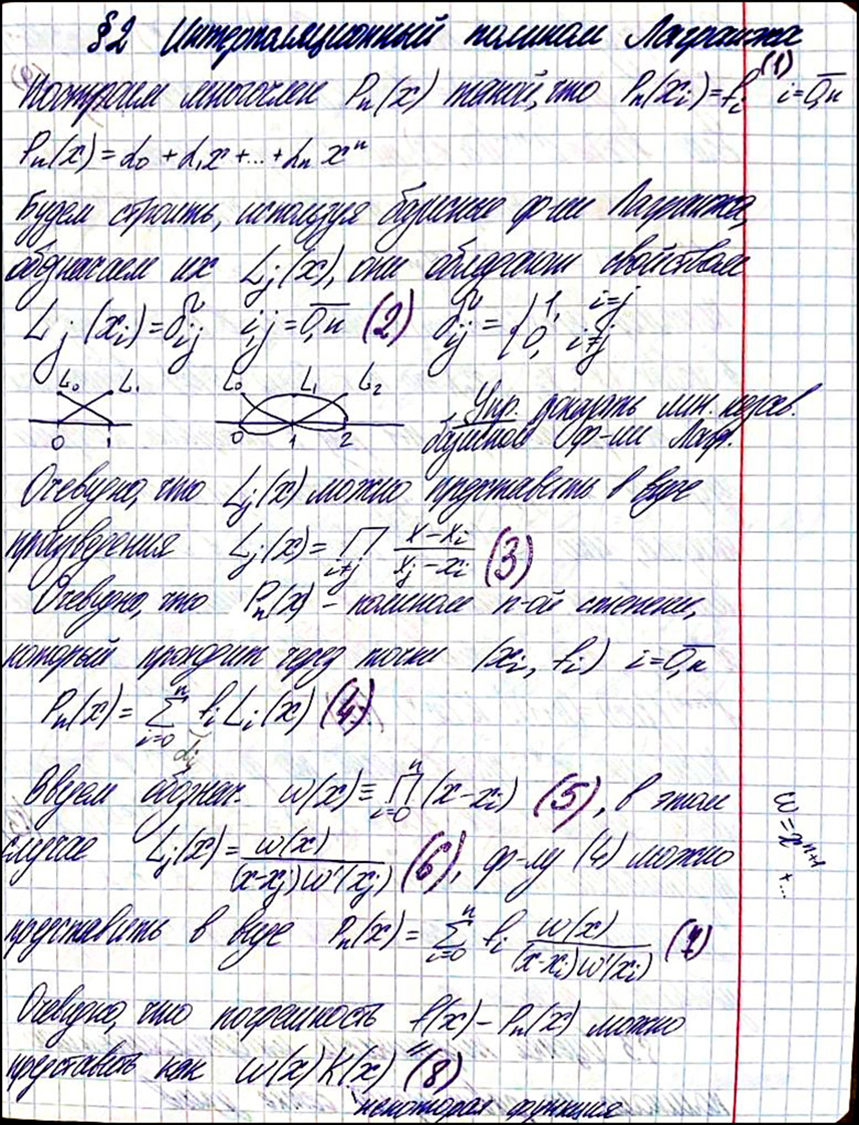 §2 Интерполяционный полином Лагранжа
Построим многочлен Pₙ(x) такой, что Pₙ(xᵢ)=fᵢ (1) i=0,n̅
Pₙ(x)=α₀+α₁x+...+αₙxⁿ
Будем строить, используя базисные ф-ии Лагранжа,
обозначаем их Lⱼ(x), они обладают свойством
Lⱼ(xᵢ)=δᵢⱼ i,j=0,n̅ (2) δᵢⱼ={1, i=j
0, i≠j
L₀ L₁ L₀ L₁ L₂ Упр. доказать лин. незав.
0 1 0 1 2 базисной ф-ии Лагр.
Очевидно, что Lⱼ(x) можно представить в виде
произведения Lⱼ(x)=∏_{i≠j} (x-xᵢ)/(xⱼ-xᵢ) (3)
Очевидно, что Pₙ(x) - полином n-ой степени,
который проходит через точки (xᵢ, fᵢ) i=0,n̅
Pₙ(x)=∑_{i=0}^{n} fᵢLᵢ(x) (4)
αᵢ
Введем обознач. ω(x)≡∏_{i=0}^{n}(x-xᵢ) (5), в этом
ω=xⁿ⁺¹+...
случае Lⱼ(x)=ω(x)/((x-xⱼ)ω'(xⱼ)) (6), ф-лу (4) можно
представить в виде Pₙ(x)=∑_{i=0}^{n} fᵢ ω(x)/((x-xᵢ)ω'(xᵢ)) (7)
Очевидно, что погрешность f(x)-Pₙ(x) можно
представить как ω(x)K(x) (8)
некоторая функция